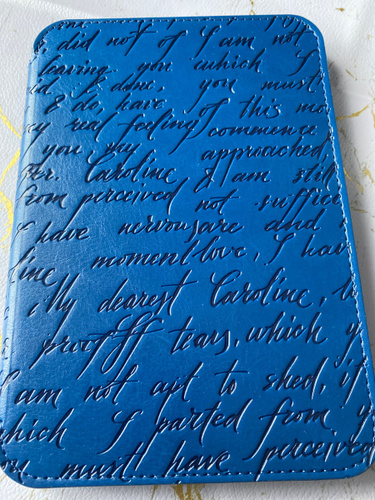 did not of I am not
leaving you which I
I done, you must
& do, have of this mo
real feeling commence
you my approached,
Mr. Caroline & am still
from perceived not suffice
I have nervousare and
line momentlove, I hav
My dearest Caroline,
tears, which y
am not apt to shed, if
which I parted from y
must have perceived